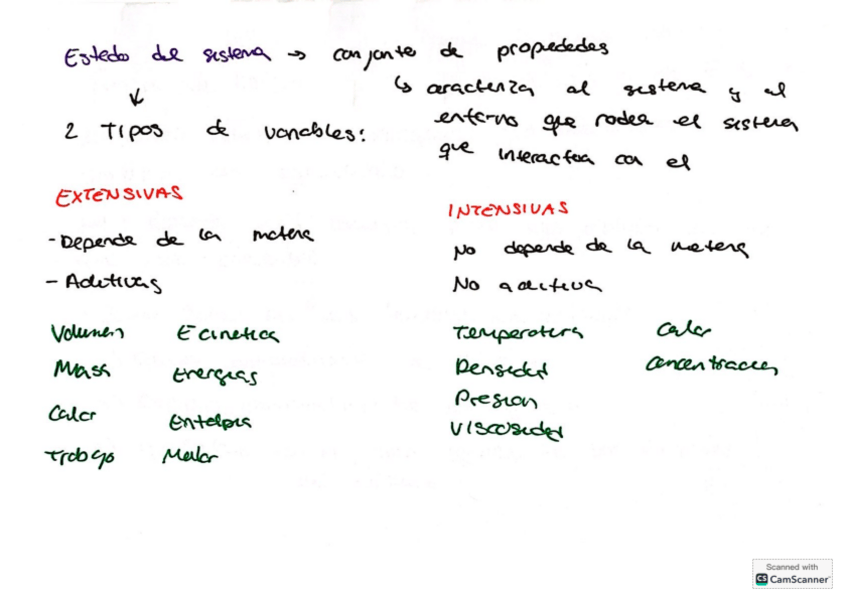 Estado del sistema → conjunto de propiedades
↳ caracteriza al sistema y al
entorno que rodea el sistema
que interactua con el
2 Tipos de variables:
EXTENSIVAS
- Depende de la materia
- Aditivas
Volumen E cinetica
Masa Energias
Calor Entalpia
Trabajo Molar
INTENSIVAS
No depende de la materia
No aditiva
Temperatura Calor
Densidad Concentracion
Presion
Viscosidad
Scanned with
CS CamScanner